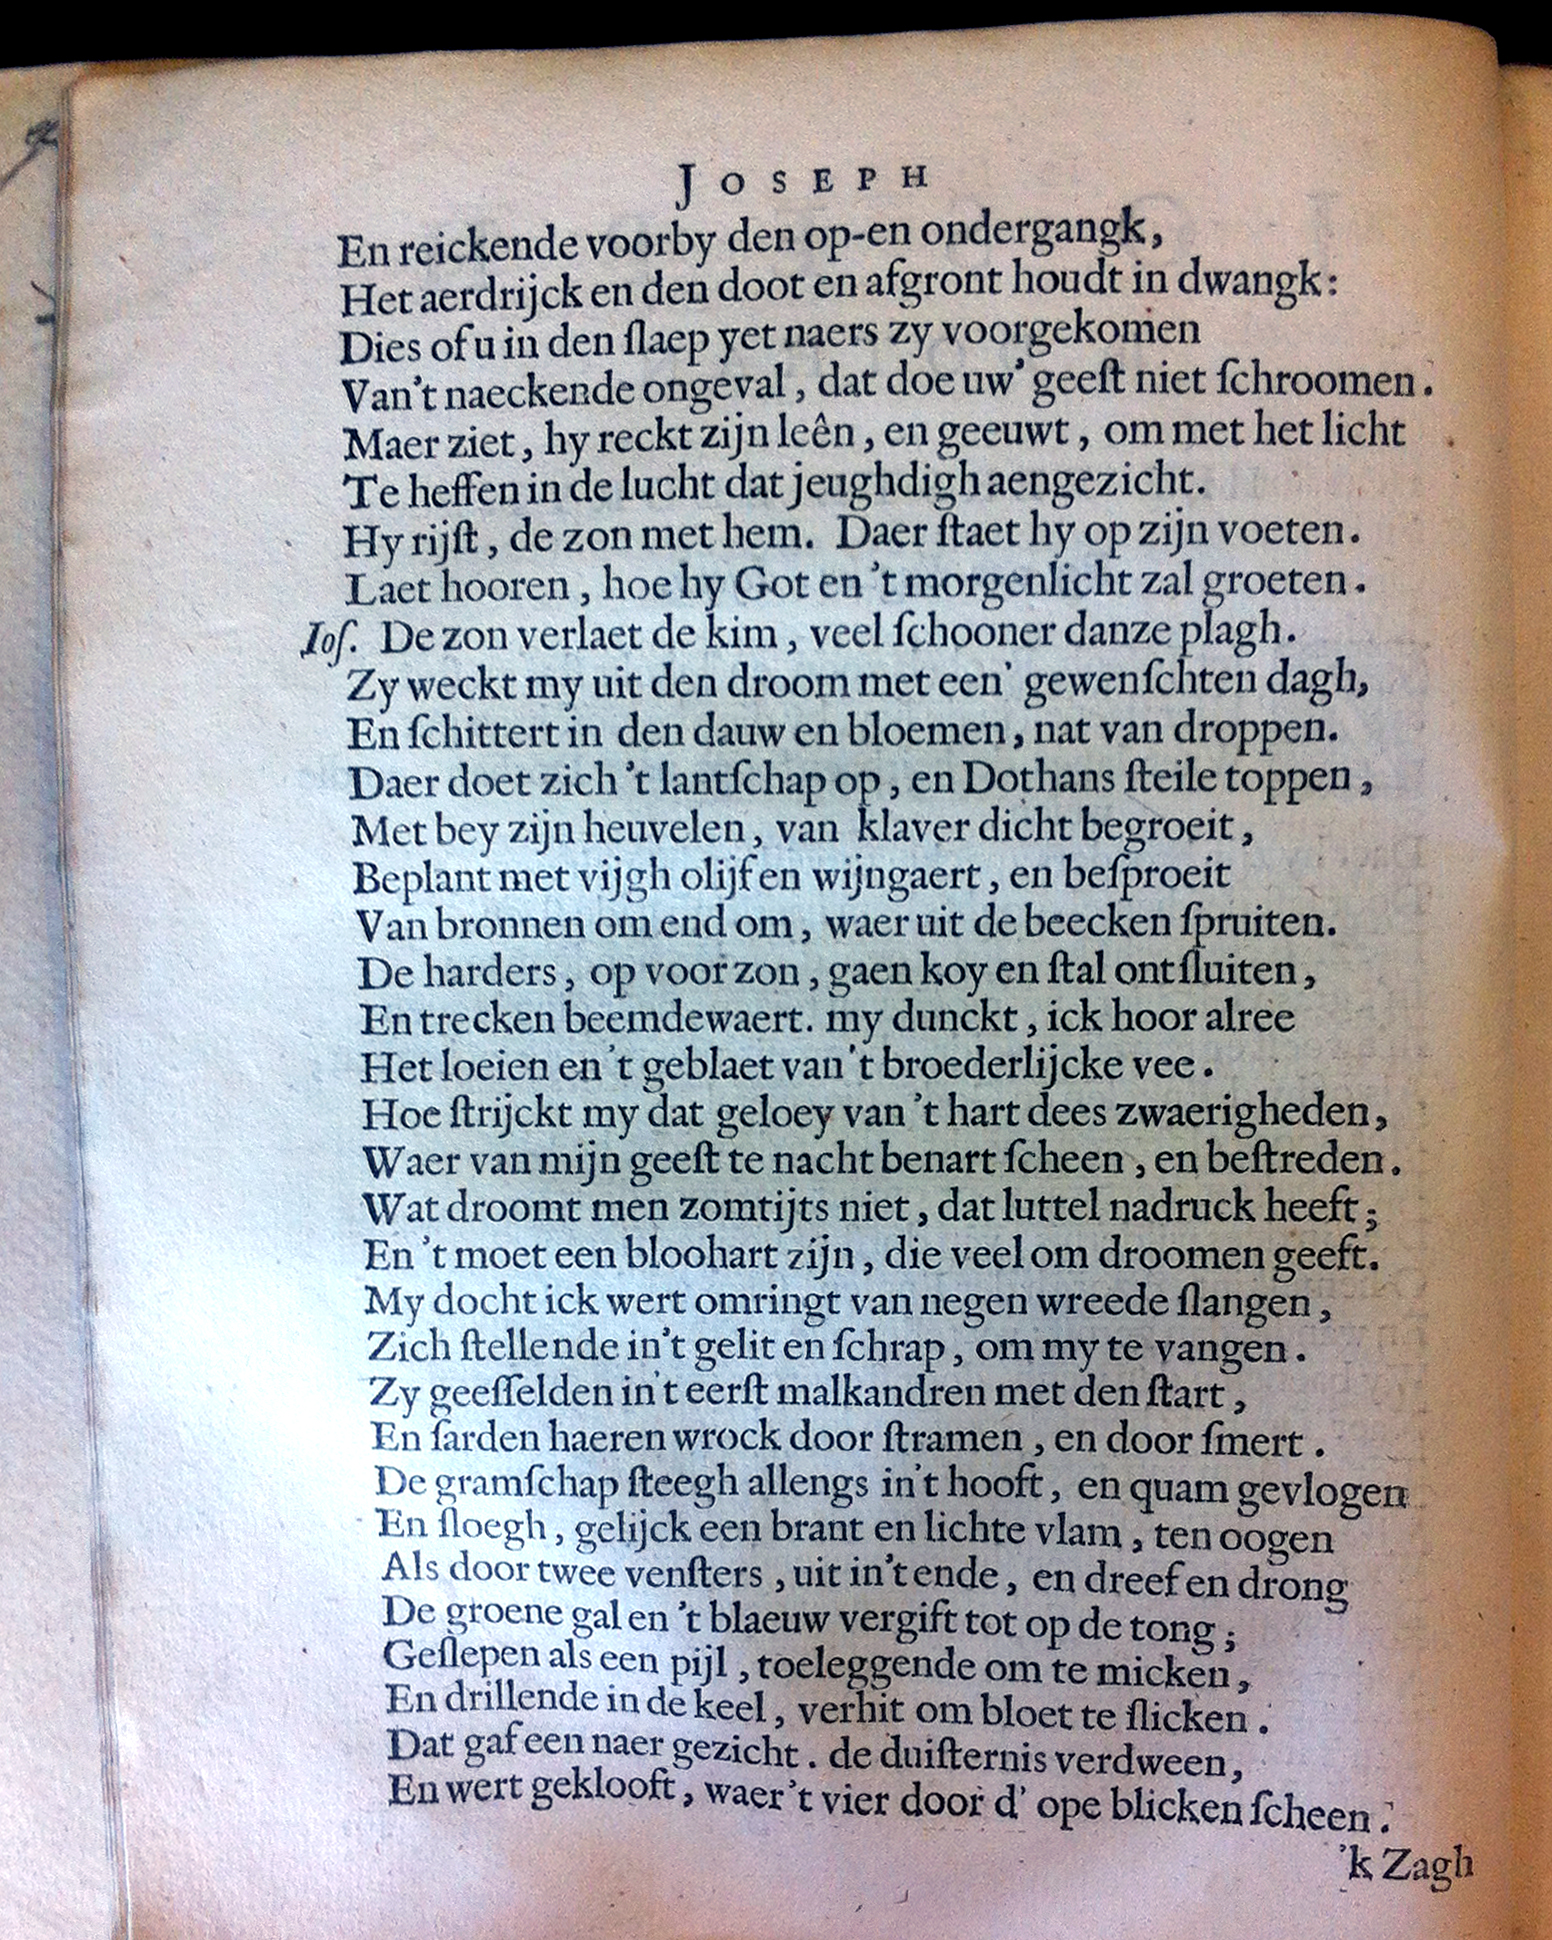 JOSEPH
En reickende voorby den op-en ondergangk,
Het aerdrijck en den doot en afgront houdt in dwangk:
Dies of u in den ſlaep yet naers zy voorgekomen
Van't naeckende ongeval, dat doe uw' geeſt niet ſchroomen.
Maer ziet, hy reckt zijn leên, en geeuwt, om met het licht
Te heffen in de lucht dat jeughdigh aengezicht.
Hy rijſt, de zon met hem. Daer ſtaet hy op zijn voeten.
Laet hooren, hoe hy Got en 't morgenlicht zal groeten.
Ioſ. De zon verlaet de kim, veel ſchooner danze plagh.
Zy weckt my uit den droom met een' gewenſchten dagh,
En ſchittert in den dauw en bloemen, nat van droppen.
Daer doet zich 't lantſchap op, en Dothans ſteile toppen,
Met bey zijn heuvelen, van klaver dicht begroeit,
Beplant met vijgh olijf en wijngaert, en beſproeit
Van bronnen om end om, waer uit de beecken ſpruiten.
De harders, op voor zon, gaen koy en ſtal ontſluiten,
En trecken beemdewaert. my dunckt, ick hoor alree
Het loeien en 't geblaet van 't broederlijcke vee.
Hoe ſtrijckt my dat geloey van 't hart dees zwaerigheden,
Waer van mijn geeſt te nacht benart ſcheen, en beſtreden.
Wat droomt men zomtijts niet, dat luttel nadruck heeft;
En 't moet een bloohart zijn, die veel om droomen geeft.
My docht ick wert omringt van negen wreede ſlangen,
Zich ſtellende in't gelit en ſchrap, om my te vangen.
Zy geeſſelden in't eerſt malkandren met den ſtart,
En ſarden haeren wrock door ſtramen, en door ſmert.
De gramſchap ſteegh allengs in't hooft, en quam gevlogen
En ſloegh, gelijck een brant en lichte vlam, ten oogen
Als door twee venſters, uit in't ende, en dreef en drong
De groene gal en 't blaeuw vergift tot op de tong;
Geſlepen als een pijl, toeleggende om te micken,
En drillende in de keel, verhit om bloet te ſlicken.
Dat gaf een naer gezicht. de duiſternis verdween,
En wert geklooft, waer't vier door d' ope blicken ſcheen.
'k Zagh